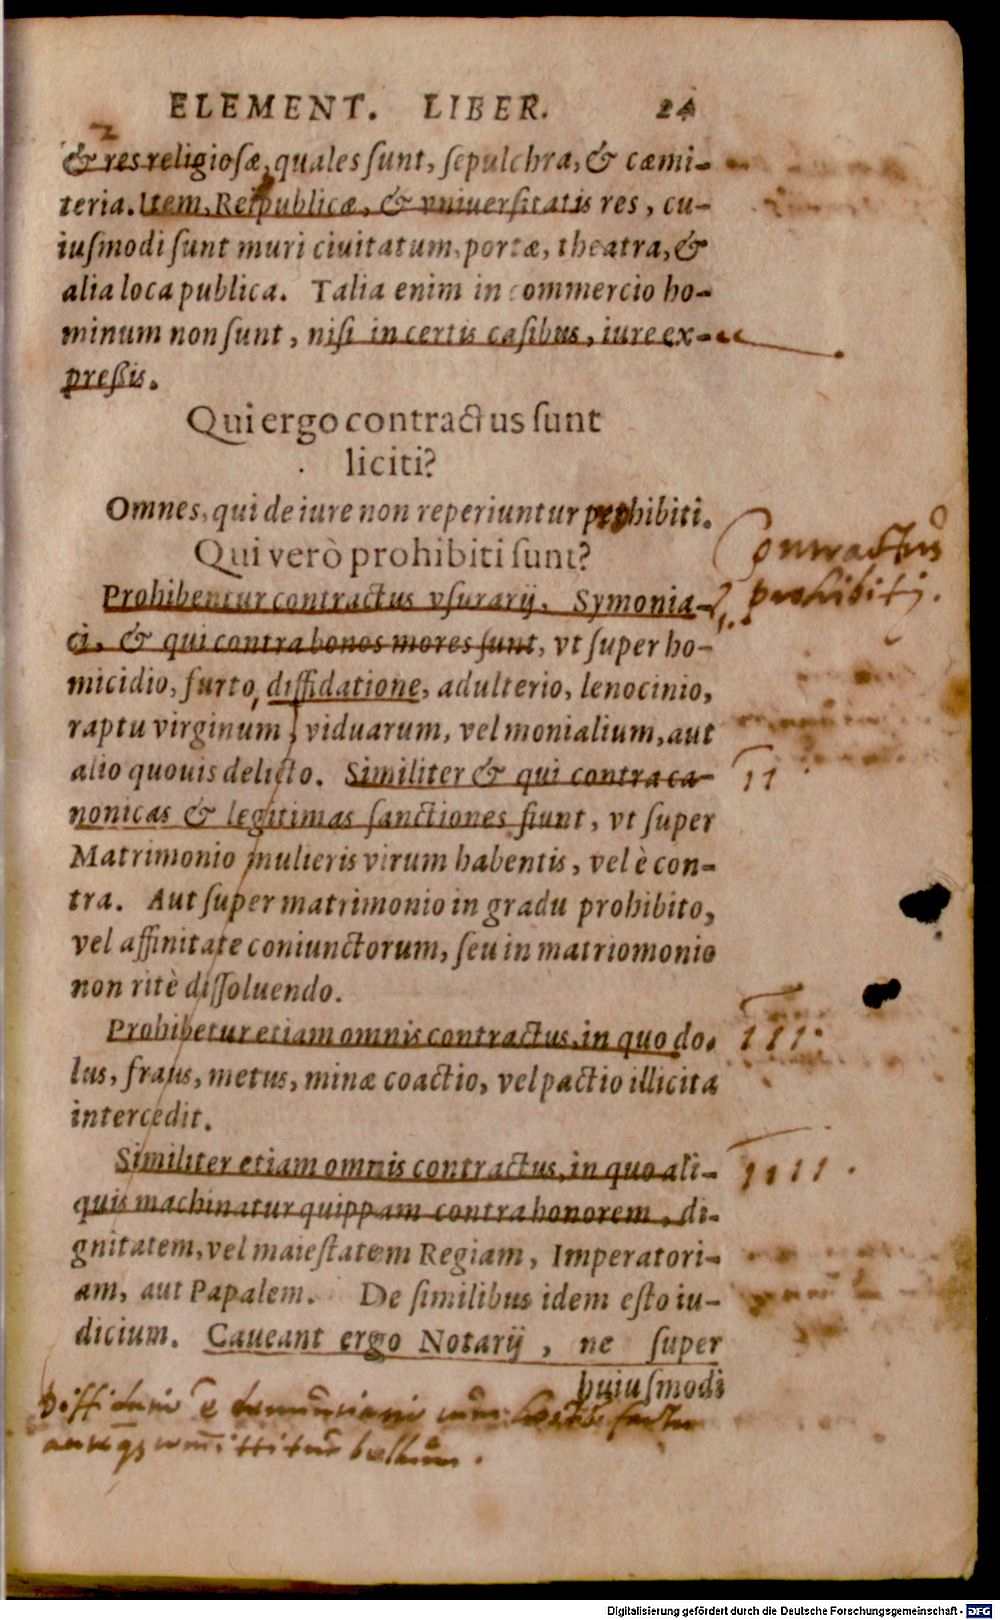 ELEMENT. LIBER. 24
& res religiosæ, quales sunt, sepulchra, & cæmi-
teria. Item, Reipublicæ, & vniuersitatis res, cu-
iusmodi sunt muri ciuitatum, portæ, theatra, &
alia loca publica. Talia enim in commercio ho-
minum non sunt, nisi in certis casibus, iure ex-
pressis.
Qui ergo contractus sunt
liciti?
Omnes, qui de iure non reperiuntur prohibiti.
Qui verò prohibiti sunt?
Contractus
prohibitj.
Prohibentur contractus vsurarij, Symonia-
ci, & qui contra bonos mores sunt, vt super ho-
micidio, furto, diffidatione, adulterio, lenocinio,
raptu virginum, viduarum, vel monialium, aut
alio quouis delicto. Similiter & qui contra ca-
11
nonicas & legitimas sanctiones fiunt, vt super
Matrimonio mulieris virum habentis, vel è con-
tra. Aut super matrimonio in gradu prohibito,
vel affinitate coniunctorum, seu in matriomonio
non ritè dissoluendo.
Prohibetur etiam omnis contractus, in quo do-
111.
lus, fraus, metus, minæ coactio, vel pactio illicita
intercedit.
Similiter etiam omnis contractus, in quo ali-
1111.
quis machinatur quippam contra honorem, di-
gnitatem, vel maiestatem Regiam, Imperatori-
am, aut Papalem. De similibus idem esto iu-
dicium. Caueant ergo Notarij, ne super
huiusmodi
bellum.
Digitalisierung gefördert durch die Deutsche Forschungsgemeinschaft - DFG